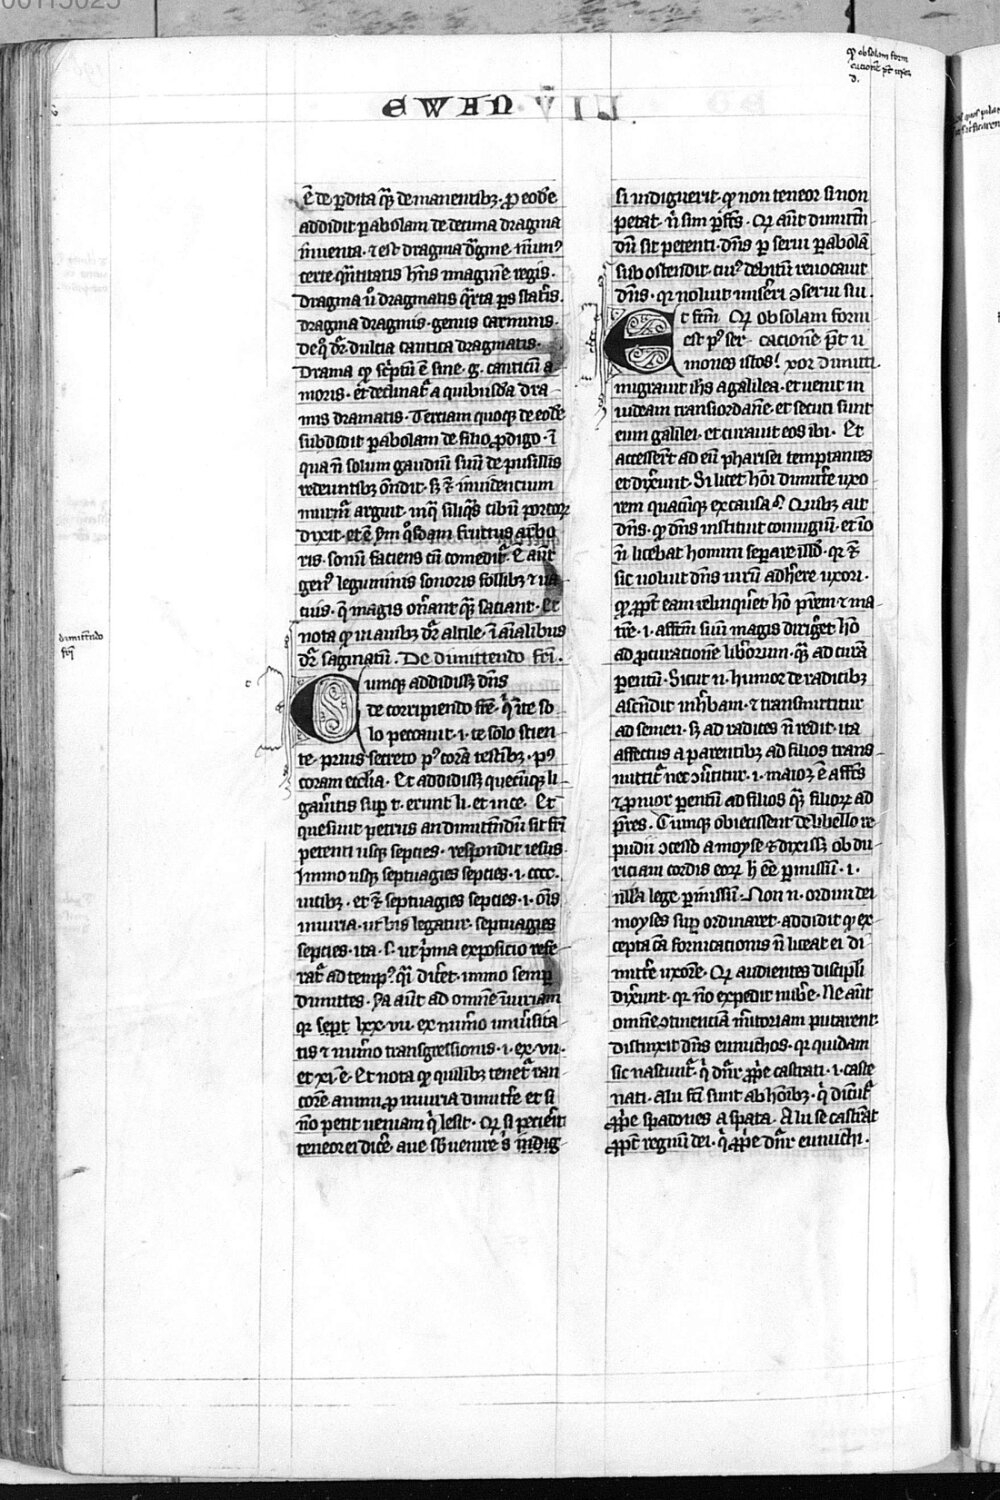 EWAN
ē de ꝑdita qͣꝫ de manentibꝫ. ꝓ eodē
addidit ꝑabolam de decima dragma
inuenta. ⁊ est dragma
certe qͣntitatis hn̄s imaginē regis.
Dragma ū dragmatis qͣrta ps
dragma dragmis. genus carminis.
de qͦ dr̄. dulcia cantica dragmatis.
Drama ꝙ sc̄ptū ē sine .g. canticū a
moris. et declinat᷑ a quibusdā dra
mis dramatis. Terciam quoqꝫ de eodē
subdidit ꝑabolam de filio ꝓdigo. ī
qua n̄ solum gaudiū suū de pusillis
redeuntibꝫ on̄dit. sꝫ ⁊ inuidencium
murm̄ arguit. in qͣ siliqͣs cibū porcoꝝ
dixit. et ē fructus arbo
ris. sonū faciens cū comedit᷑. ē aūt
genꝰ leguminis sonoris follibꝫ ⁊ ua
cuis. qͥ magis on̄ant qͣꝫ saciant. Et
nota ꝙ in auibꝫ dr̄ altile. ī aīalibus
dr̄ saginatū. De dimittendo
Cumqꝫ addidissꝫ dn̄s
de corripiendo fr̄e. qͥ īte so
lo peccauit .i. te solo scien
te. prius secreto pꝰ corā testibꝫ. pꝰ
coram ecclia. Et addidissꝫ quecūqꝫ li
gau̅itis suꝑ t. erunt li. et in ce. Et
quesiuit petrus an dimittēdū sit fr̄i
petenti usqꝫ septies. respondit iesus
Immo usqꝫ septuagies septies .i. cccc.
uicibꝫ. et ⁊ septuagies septies .i. om̄s
iniuria. ut bis legatur. septuagies
septies. ita .s. ut pͥma exposicio refe
rat᷑ ad tempꝰ. qͣi dic̄et. immo semꝑ
dimittes. s̄a aūt ad omnē iniuriam
qꝛ sept. lxx. vii. ex num̄o uniu̅sita
tis ⁊ num̄o transgressionis .i. ex .vii.
et xi. ē. Et nota ꝙ quilibꝫ tenet᷑ ran
corē animi ꝓ iniuria dimitt̄e et si
nō petit ueniam qͥ lesit. Qꝛ si pecierit
teneor ei dic̄e aue indig
si indiguerit. ꝙ non teneor si non
petat. n̄ sim ꝑf̄s. Qꝛ aūt dimittē
dū sit petenti. dn̄s ꝑ serui ꝑabolā
sub ostendit. cuiꝰ debitū reuocauit
dn̄s. qꝛ noluit miser̄i ɔserui sui.
Et fc̄m Qꝛ ob solam forni
est pꝰ ser cacionē pt̄ u
mones istos! xor dimitti.
migrauit ih̄s a galilea. et uenit in
iudeam transiordanē. et secuti sunt
eum galilei. et curauit eos ibi. Et
accesser̄t ad eū pharisei temptantes
et dixer̄unt. Si licet hōi dimitt̄e uxo
rem quacūqꝫ ex causa. Quibꝫ ait
dn̄s. ꝙ dn̄s instituit coniugiū. et iō
n̄ licebat homini sepaᵣare illd. qꝛ ⁊
sic uoluit dn̄s uirū adher̄e uxori.
ꝙ ꝓpt̄ eam relinqͣret hō pr̄em ⁊ ma
trē .i. affctm̄ suū magis diriḡet hō
ad ꝓcurationē liberorum. qͣꝫ ad curā
ꝑentū. Sicut n̄. humor de radicibꝫ
ascēdit in hr̄bam. ⁊ transmittitur
ad semen. sꝫ ad radices n̄ redit. ita
affectus a parentibꝫ ad filios trans
mittit᷑ nec ɔu̅titur .i. maior ē affc̄s
⁊ ꝓnior ꝑentū ad filios qͣꝫ filioꝝ ad
pr̄es. Cumqꝫ obiecissent de libello re
pudii ɔcesso a moyse ⁊ dixissꝫ ob du
riciam cordis eoꝝ h̄ ēē ꝑmissū .i.
illa lege ꝑmissū. Non n̄. ordini dei
moyses suꝑ ordinaret. addidit ꝙ ex
cepta cā fornicationis n̄ liceat ei di
mitt̄e uxorē. Qꝛ audientes discip̄li
dixer̄unt. qꝛ nō expedit nub̄e. Ne aūt
omnē ɔtinenciā m̄itoriam putarent.
distinxit dn̄s eunuchos. qꝛ quidam
sic nascunt᷑. qͥ dn̄r ꝓpͥe castrati .i. caste
nati. Alii fc̄i sunt ab hōibꝫ. qͥ dicunt᷑
ꝓpͥe spadones a spata. Alii se castrāt
ꝓpt̄ regnū dei. qͥ ꝓpͥe dn̄r eunuchi.
ꝙ ob solam forni
cacionē pt̄ uxor
d.
dimittēdo